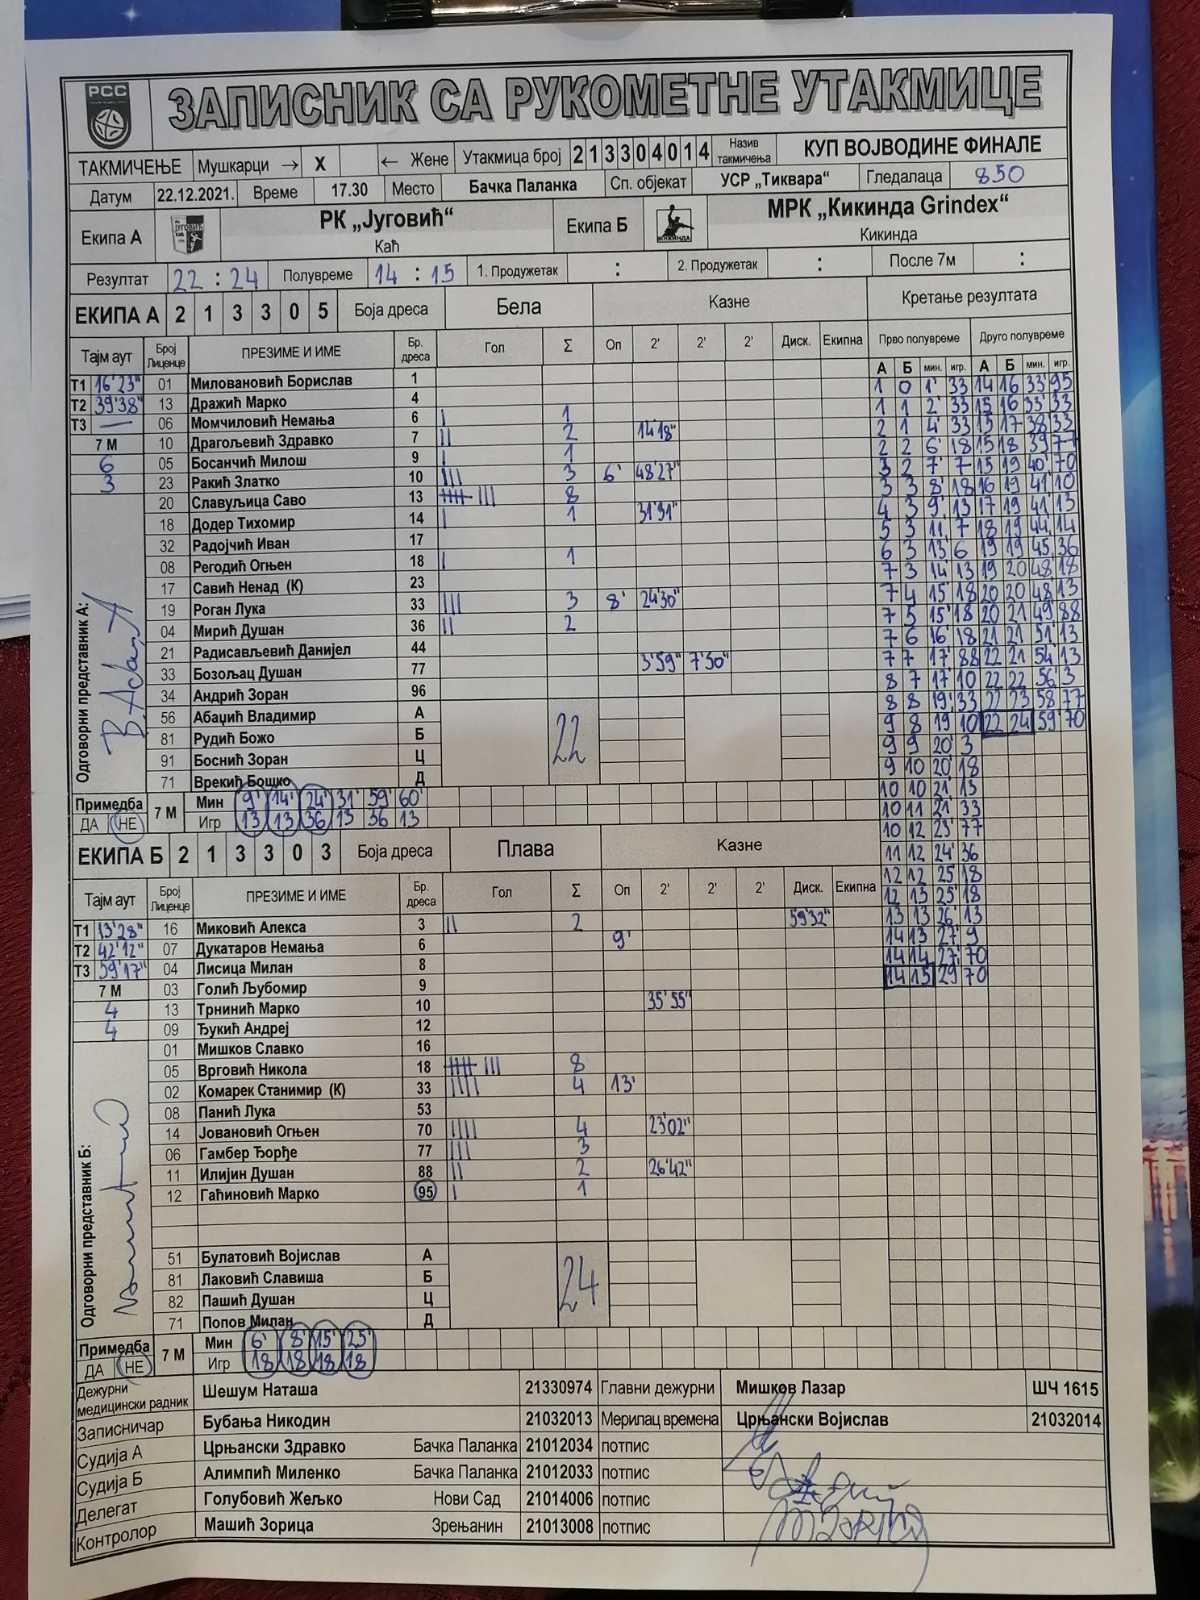 РСС
ЗАПИСНИК СА РУКОМЕТНЕ УТАКМИЦЕ
ТАКМИЧЕЊЕ Мушкарци → X ← Жене Утакмица број 213304014 Назив такмичења КУП ВОЈВОДИНЕ ФИНАЛЕ
Датум 22.12.2021. Време 17.30 Место Бачка Паланка Сп. објекат УСР „Тиквара“ Гледалаца 850
Екипа А РК „Југовић“ Каћ Екипа Б МРК „Кикинда Grindex“ Кикинда
Резултат 22 : 24 Полувреме 14 : 15 1. Продужетак : 2. Продужетак : После 7м :
ЕКИПА А 2 1 3 3 0 5 Боја дреса Бела Казне Кретање резултата
Тајм аут Број Лиценце ПРЕЗИМЕ И ИМЕ Бр. дреса Гол Σ Оп 2' 2' 2' Диск. Екипна Прво полувреме Друго полувреме
А Б мин. игр. А Б мин. игр.
Т1 16'23" 01 Миловановић Борислав 1
Т2 39'38" 13 Дражић Марко 4
Т3 — 06 Момчиловић Немања 6 I 1
7 М 10 Драгољевић Здравко 7 II 2 14'18"
6 05 Босанчић Милош 9 I 1
3 23 Ракић Златко 10 III 3 6' 48'27"
20 Славуљица Саво 13 IIIII III 8
18 Додер Тихомир 14 I 1 31'31"
32 Радојчић Иван 17
08 Регодић Огњен 18 I 1
17 Савић Ненад (К) 23
19 Роган Лука 33 III 3 8' 24'30"
04 Мирић Душан 36 II 2
21 Радисављевић Данијел 44
33 Бозољац Душан 77 3'59" 7'50"
34 Андрић Зоран 96
56 Абаџић Владимир А 22
81 Рудић Божо Б
91 Боснић Зоран Ц
71 Врекић Бошко Д
Одговорни представник А:
1 0 1' 33 14 16 33' 95
1 1 2' 33 15 16 33' 33
2 1 4' 33 15 17 38 33
2 2 6' 18 15 18 39 77
3 2 7' 7 15 19 40' 70
3 3 8' 18 16 19 41 10
4 3 9' 13 17 19 41 13
5 3 11' 7 18 19 44 14
6 3 13' 6 19 19 45 36
7 3 14' 13 19 20 48' 18
7 4 15' 18 20 20 48 13
7 5 15' 18 20 21 49' 88
7 6 16' 18 21 21 51' 13
7 7 17' 88 22 21 54 13
8 7 17' 10 22 22 56' 3
8 8 19' 33 22 23 58 77
9 8 19 10 22 24 59' 70
9 9 20' 3
9 10 20' 18
10 10 21' 13
10 11 21' 33
10 12 23' 77
11 12 24' 36
12 12 25' 18
12 13 25' 18
13 13 26' 13
14 13 27' 9
14 14 27' 70
14 15 29' 70
Примедба ДА НЕ 7 М Мин 9' 14' 24' 31' 59' 60'
Игр 13 13 36 13 36 13
ЕКИПА Б 2 1 3 3 0 3 Боја дреса Плава Казне
Тајм аут Број Лиценце ПРЕЗИМЕ И ИМЕ Бр. дреса Гол Σ Оп 2' 2' 2' Диск. Екипна
Т1 13'28" 16 Миковић Алекса 3 II 2 59'32"
Т2 42'12" 07 Дукатаров Немања 6 9'
Т3 59'17" 04 Лисица Милан 8
7 М 03 Голић Љубомир 9
4 13 Трнинић Марко 10 35'55"
4 09 Ђукић Андреј 12
01 Мишков Славко 16
05 Врговић Никола 18 IIIII III 8
02 Комарек Станимир (К) 33 IIII 4 13'
08 Панић Лука 53
14 Јовановић Огњен 70 IIII 4 23'02"
06 Гамбер Ђорђе 77 III 3
11 Илијин Душан 88 II 2 26'42"
12 Гаћиновић Марко 95 I 1
51 Булатовић Војислав А 24
81 Лаковић Славиша Б
82 Пашић Душан Ц
71 Попов Милан Д
Одговорни представник Б:
Примедба ДА НЕ 7 М Мин 6' 8' 15' 25'
Игр 18 18 18 18
Дежурни медицински радник Шешум Наташа 21330974 Главни дежурни Мишков Лазар ШЧ 1615
Записничар Бубања Никодин 21032013 Мерилац времена Црњански Војислав 21032014
Судија А Црњански Здравко Бачка Паланка 21012034 потпис
Судија Б Алимпић Миленко Бачка Паланка 21012033 потпис
Делегат Голубовић Жељко Нови Сад 21014006 потпис
Контролор Машић Зорица Зрењанин 21013008 потпис